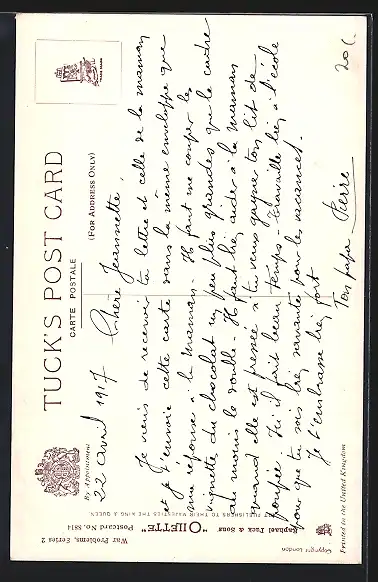 TUCK'S POST CARD
CARTE POSTALE
(FOR ADDRESS ONLY)
By Appointment
22 avril 1917
Chère Jeannette,
Je viens de recevoir ta lettre et celle de la maman
et je t'envoie cette carte dans la même enveloppe que
ma réponse à la maman. Il faut me couper la
vignette du chocolat un peu plus grandes que le cadre
au moins le double. Il faut bien aider à la maman
quand elle est pressée si tu veux gagner ton lit de
poupée. Ici il fait beau temps travaille bien à l'école
pour que tu sois bien savante pour les vacances.
Je t'embrasse bien fort
Ton papa Pierre
20 c.
War Problems, Series 2
"OILETTE" Postcard No. 8814
Raphael Tuck & Sons'
ART PUBLISHERS TO THEIR MAJESTIES THE KING & QUEEN
Copyright London
Printed in the United Kingdom